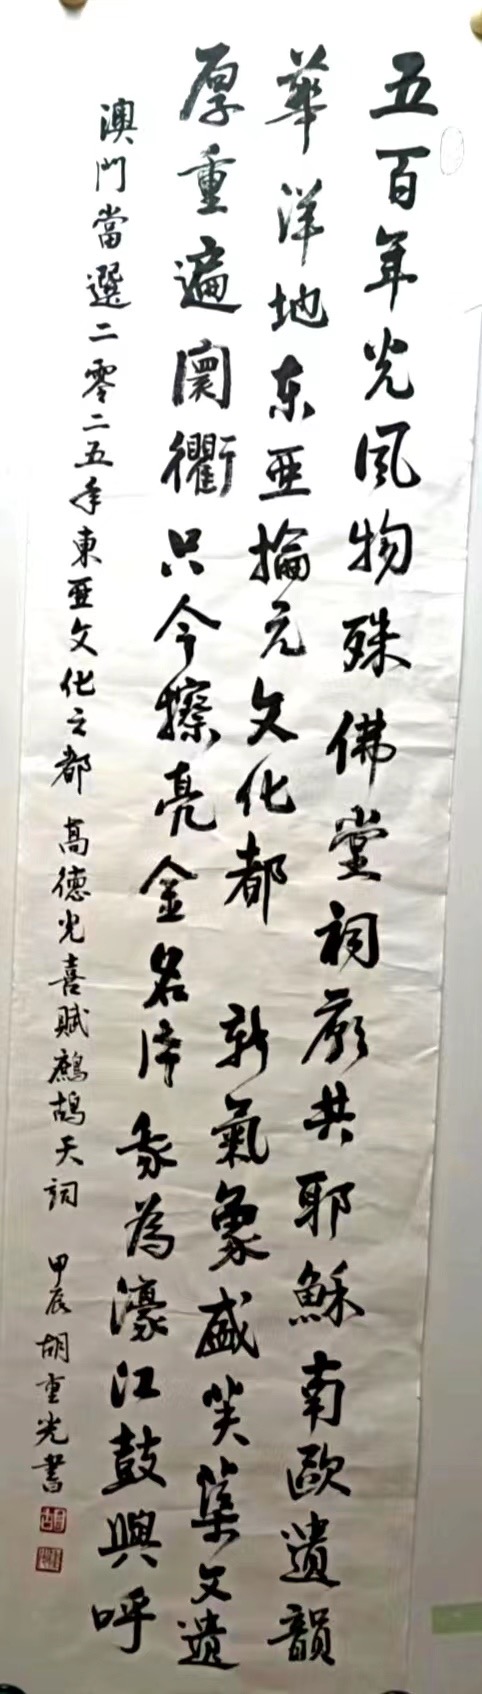 五百年光风物殊佛堂祠廟共耶穌南歐遺韻
華洋地东亞掄元文化都 新氣象盛芙蕖文遺
厚重遍闤衢只今擦亮金名片我為濠江鼓與呼
澳門當選二零二五年東亞文化之都 高德光喜賦鷓鴣天詞 甲辰胡重光書